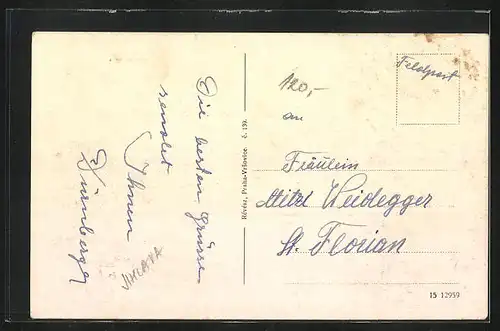 Die besten Grüsse
sendet
Ihnen
Nürnberger
JIHLAVA
Révész, Praha-Vršovice. č. 139.
120,-
Feldpost
an
Fräulein
Mitzi Weidegger
St. Florian
15 12959